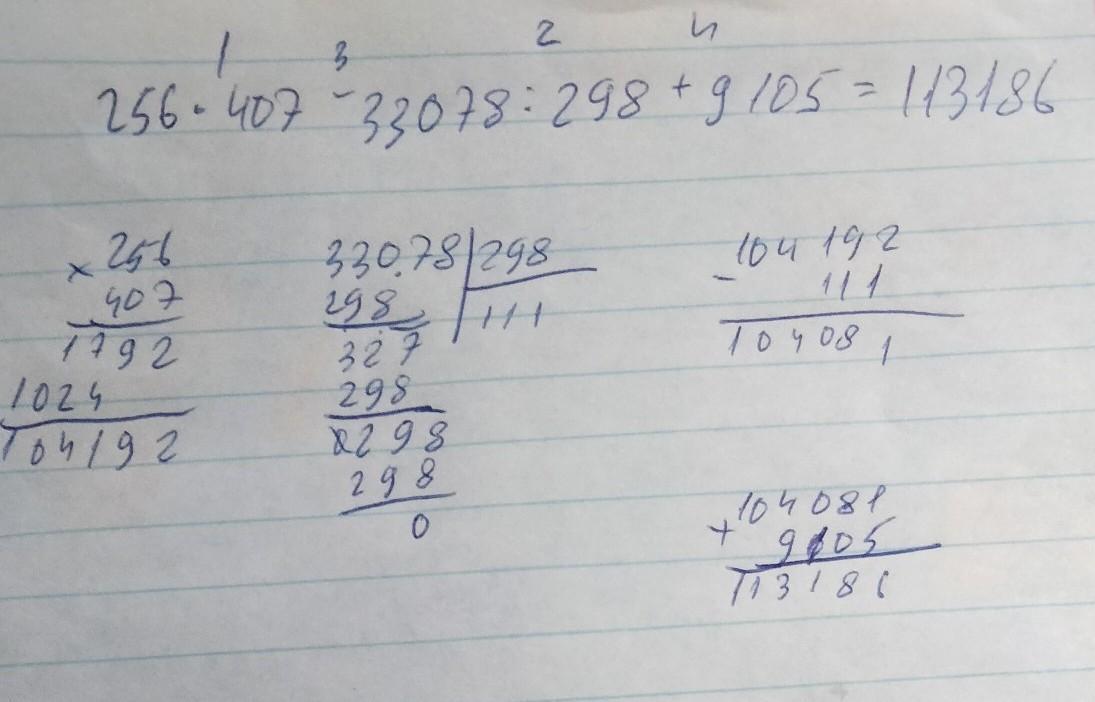 1 3 2 4
256 · 407 - 33078 : 298 + 9105 = 113186
× 256
407
1792
1024
104192
33078 | 298
298
111
327
298
0298
298
0
- 104192
111
104081
+ 104081
9105
113186